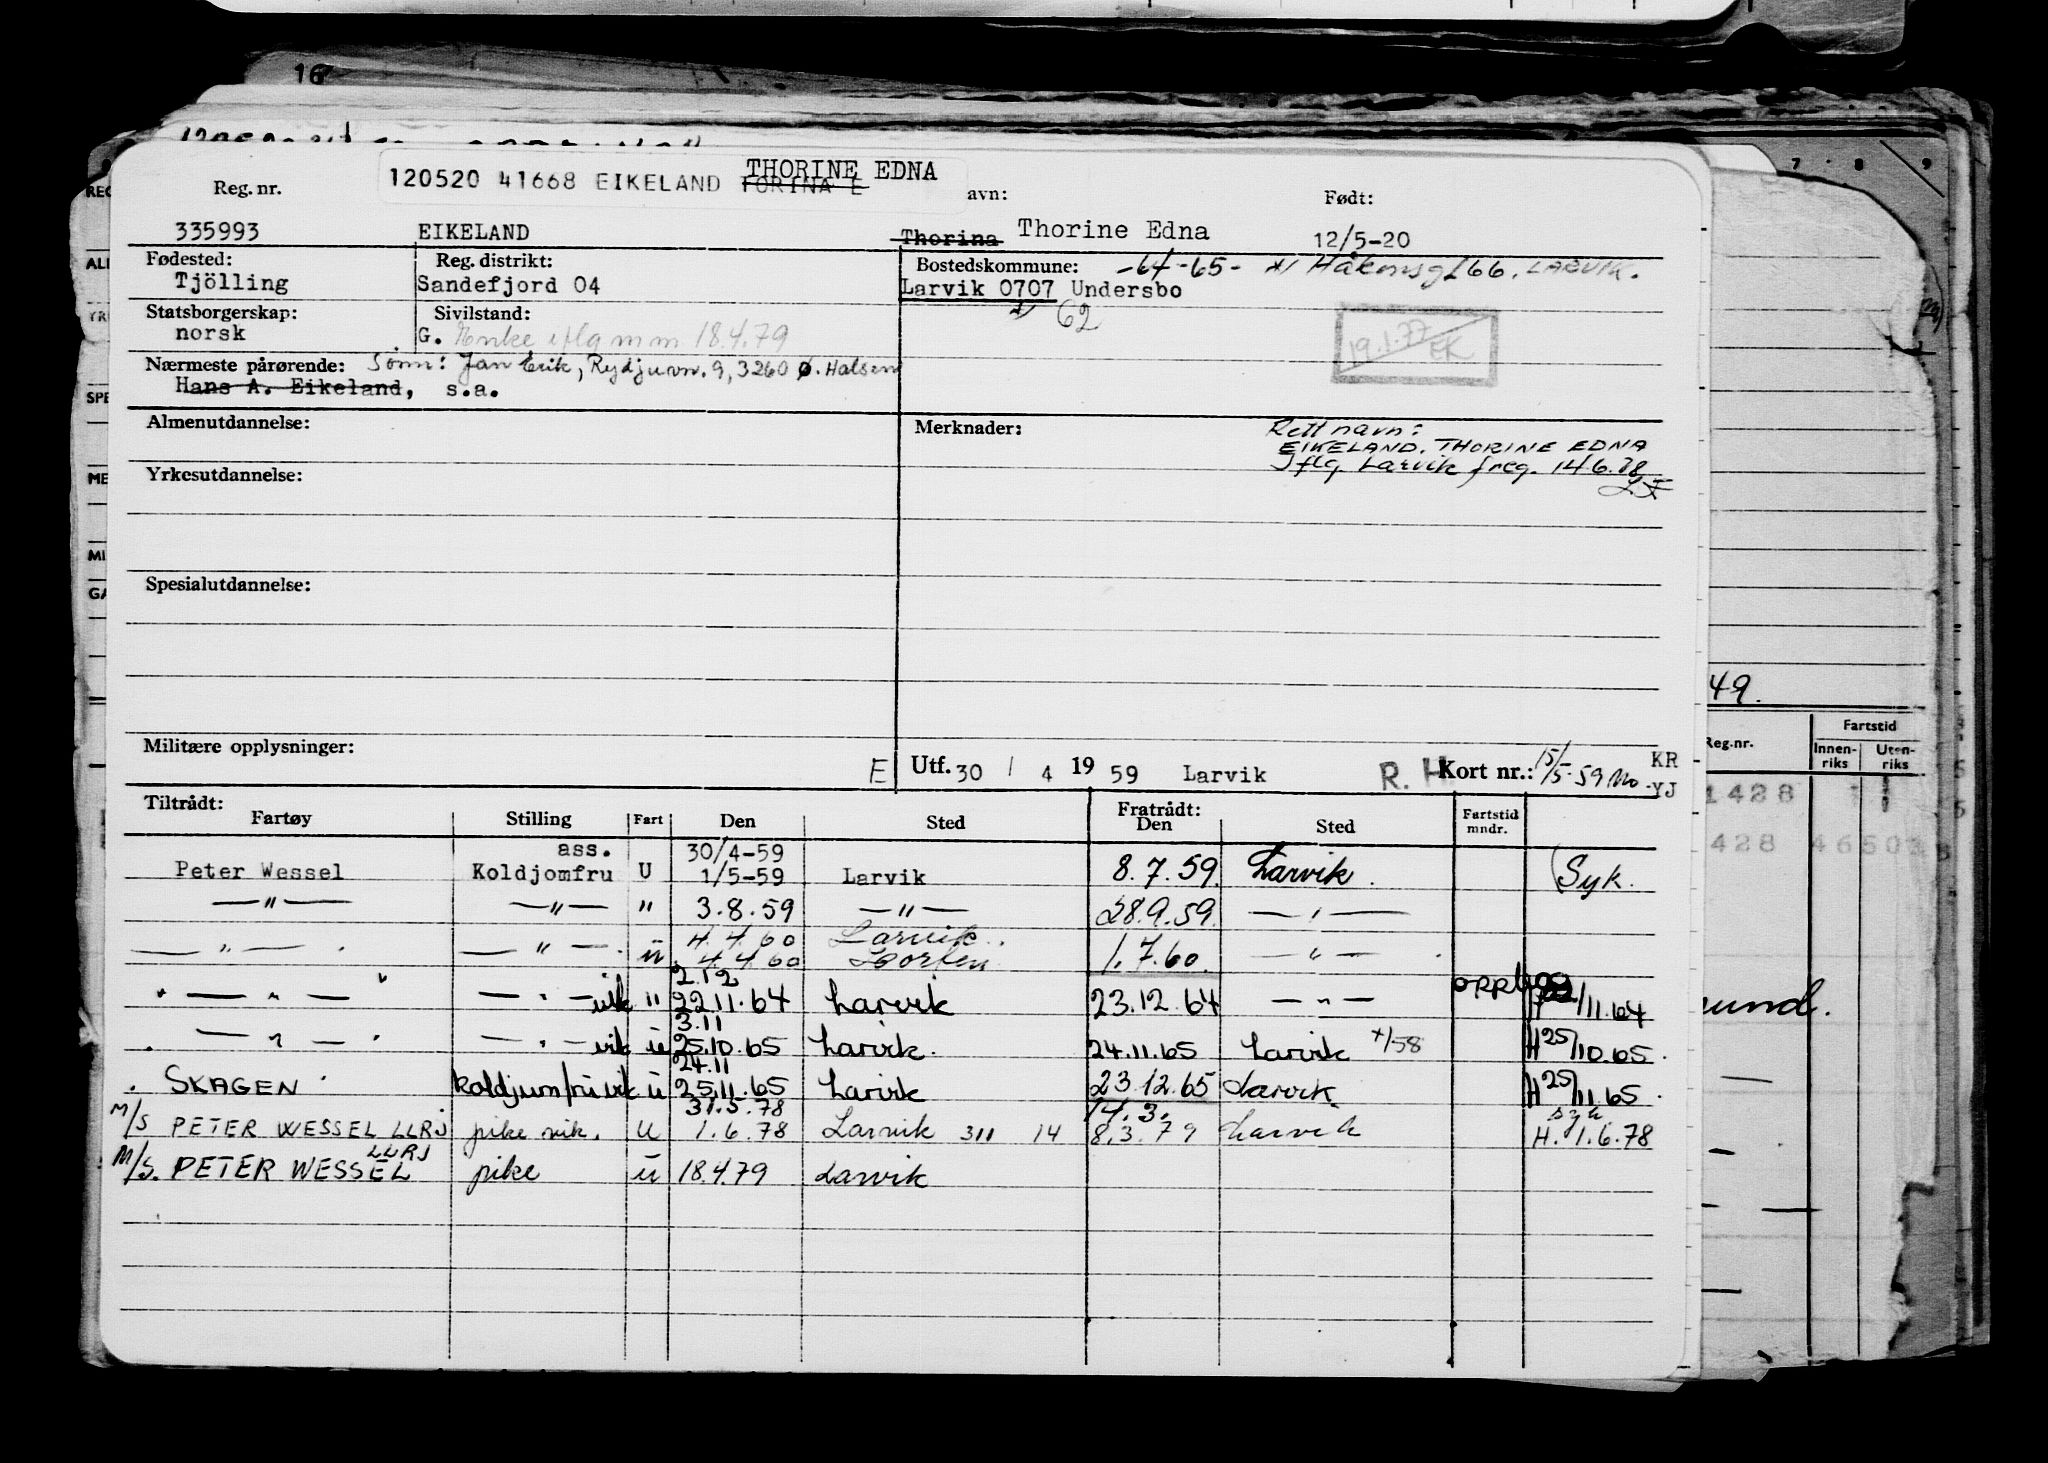 16
THORINE EDNA
120520 41668 EIKELAND TORINA E
Reg. nr. avn: Født:
335993 EIKELAND Thorina Thorine Edna 12/5-20
Fødested: Reg. distrikt: Bostedskommune: -64-65- Håkonsgt 66. LARVIK.
Tjölling Sandefjord 04 Larvik 0707 Undersbo
62
Statsborgerskap: Sivilstand:
norsk G. Enke iflg mm 18.4.79
19.1.77 EK
Nærmeste pårørende: Sønn: Jan Erik, Rydjuvn. 9, 3260 Ø. Halsen
Hans A. Eikeland, s.a.
Almenutdannelse: Merknader: Rett navn:
EIKELAND. THORINE EDNA
Iflg Larvik freg. 14.6.78
LF
Yrkesutdannelse:
Spesialutdannelse:
49.
Militære opplysninger:
E Utf. 30 / 4 19 59 Larvik R. H Kort nr.: 15/5-59 Mo KR
YJ
Tiltrådt: Fratrådt:
Fartøy Stilling Fart Den Sted Den Sted Fartstid mndr.
ass. 30/4-59
Peter Wessel Koldjomfru U 1/5-59 Larvik 8.7.59. Larvik. Syk.
—"— —"— " 3.8.59 —"— 28.9.59. —"—
4.4.60 Larvik.
—"— —"— ü 4.4.60 Horten 1.7.60. —"—
2.12
—"— —"— vik " 22.11.64 Larvik 23.12.64 —"— opphør 22/11.64
3.11
—"— —"— vik ü 25.10.65 Larvik. 24.11.65 Larvik +/58 H 25/10.65.
24.11
SKAGEN koldjumfru vik ü 25.11.65 Larvik 23.12.65 Larvik H 25/11.65.
31.5.78 14.3. syk
M/S PETER WESSEL LLRJ pike vik. U 1.6.78 Larvik 311 14 8.3.79 Larvik H. 1.6.78
LLRJ
M/S. PETER WESSEL pike ü 18.4.79 Larvik
Reg.nr. Fartstid
Innen-riks Uten-riks
1428
428 46503
und.